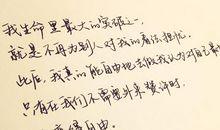 我生命里最大的突破之一,
就是不再为别人对我的看法担忧.
此后,我真的能自由地去做我认为对自己最
只有在我们不需要外来赞许时,
自由.